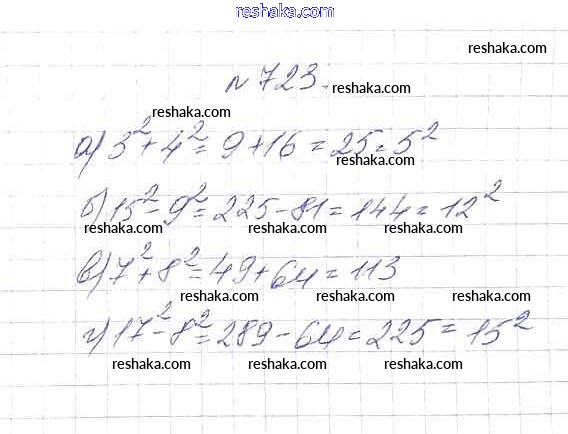 reshaka.com
reshaka.com
№ 723.
reshaka.com
reshaka.com
а) 3² + 4² = 9 + 16 = 25 = 5²
reshaka.com
б) 15² - 9² = 225 - 81 = 144 = 12²
reshaka.com reshaka.com reshaka.com
в) 7² + 8² = 49 + 64 = 113
reshaka.com reshaka.com reshaka.com
г) 17² - 8² = 289 - 64 = 225 = 15²
reshaka.com reshaka.com reshaka.com